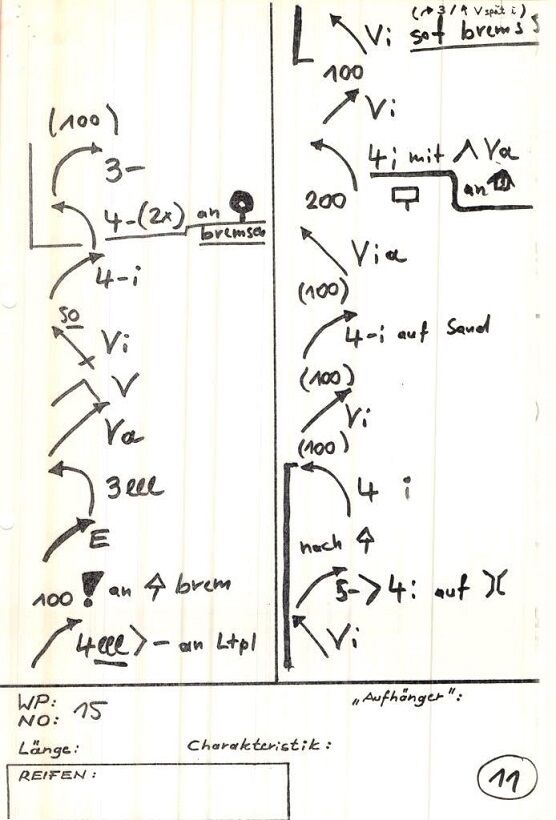 (100)
3-
4-(2x) an
bremsen
4-i
50
Vi
V
Va
3lll
E
100 ! an brem
4lll > - an Ltpl
(→3/ V spät i)
Vi sof brems
100
Vi
4i mit Λ Va
200 an
Via
(100)
4-i auf Sand
(100)
Vi
(100)
4 i
nach
5-> 4i auf )(
Vi
WP:
NO: 15
Länge:
Charakteristik:
REIFEN:
„Aufhänger":
11